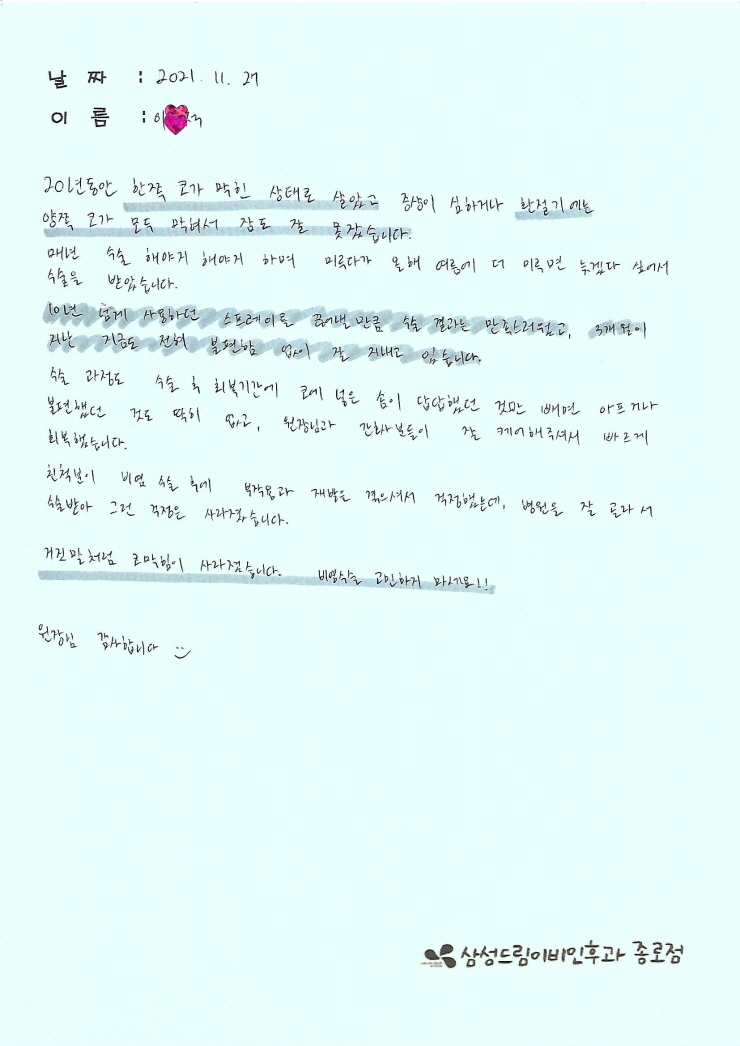 날 짜 : 2021. 11. 27
이 름 : 이
20년동안 한쪽 코가 막힌 상태로 살았고 증상이 심하거나 환절기에는
양쪽 코가 모두 막혀서 잠도 잘 못잤습니다.
매년 수술 해야지 해야지 하며 미루다가 올해 여름에 더 미루면 늦겠다 싶어서
수술을 받았습니다.
10년 넘게 사용하던 스프레이를 끊어낼 만큼 수술 결과는 만족스러웠고, 3개월이
지난 지금도 전혀 불편함 없이 잘 지내고 있습니다.
수술 과정도 수술 후 회복기간에 코에 넣은 솜이 답답했던 것만 빼면 아프거나
불편했던 것도 딱히 없고, 원장님과 간호사분들이 잘 케어해주셔서 빠르게
회복했습니다.
친척분이 비염 수술 후에 부작용과 재발을 겪으셔서 걱정했는데, 병원을 잘 골라서
수술받아 그런 걱정은 사라졌습니다.
거짓말처럼 코막힘이 사라졌습니다. 비염수술 고민하지 마세요!!
원장님 감사합니다
삼성드림이비인후과 종로점